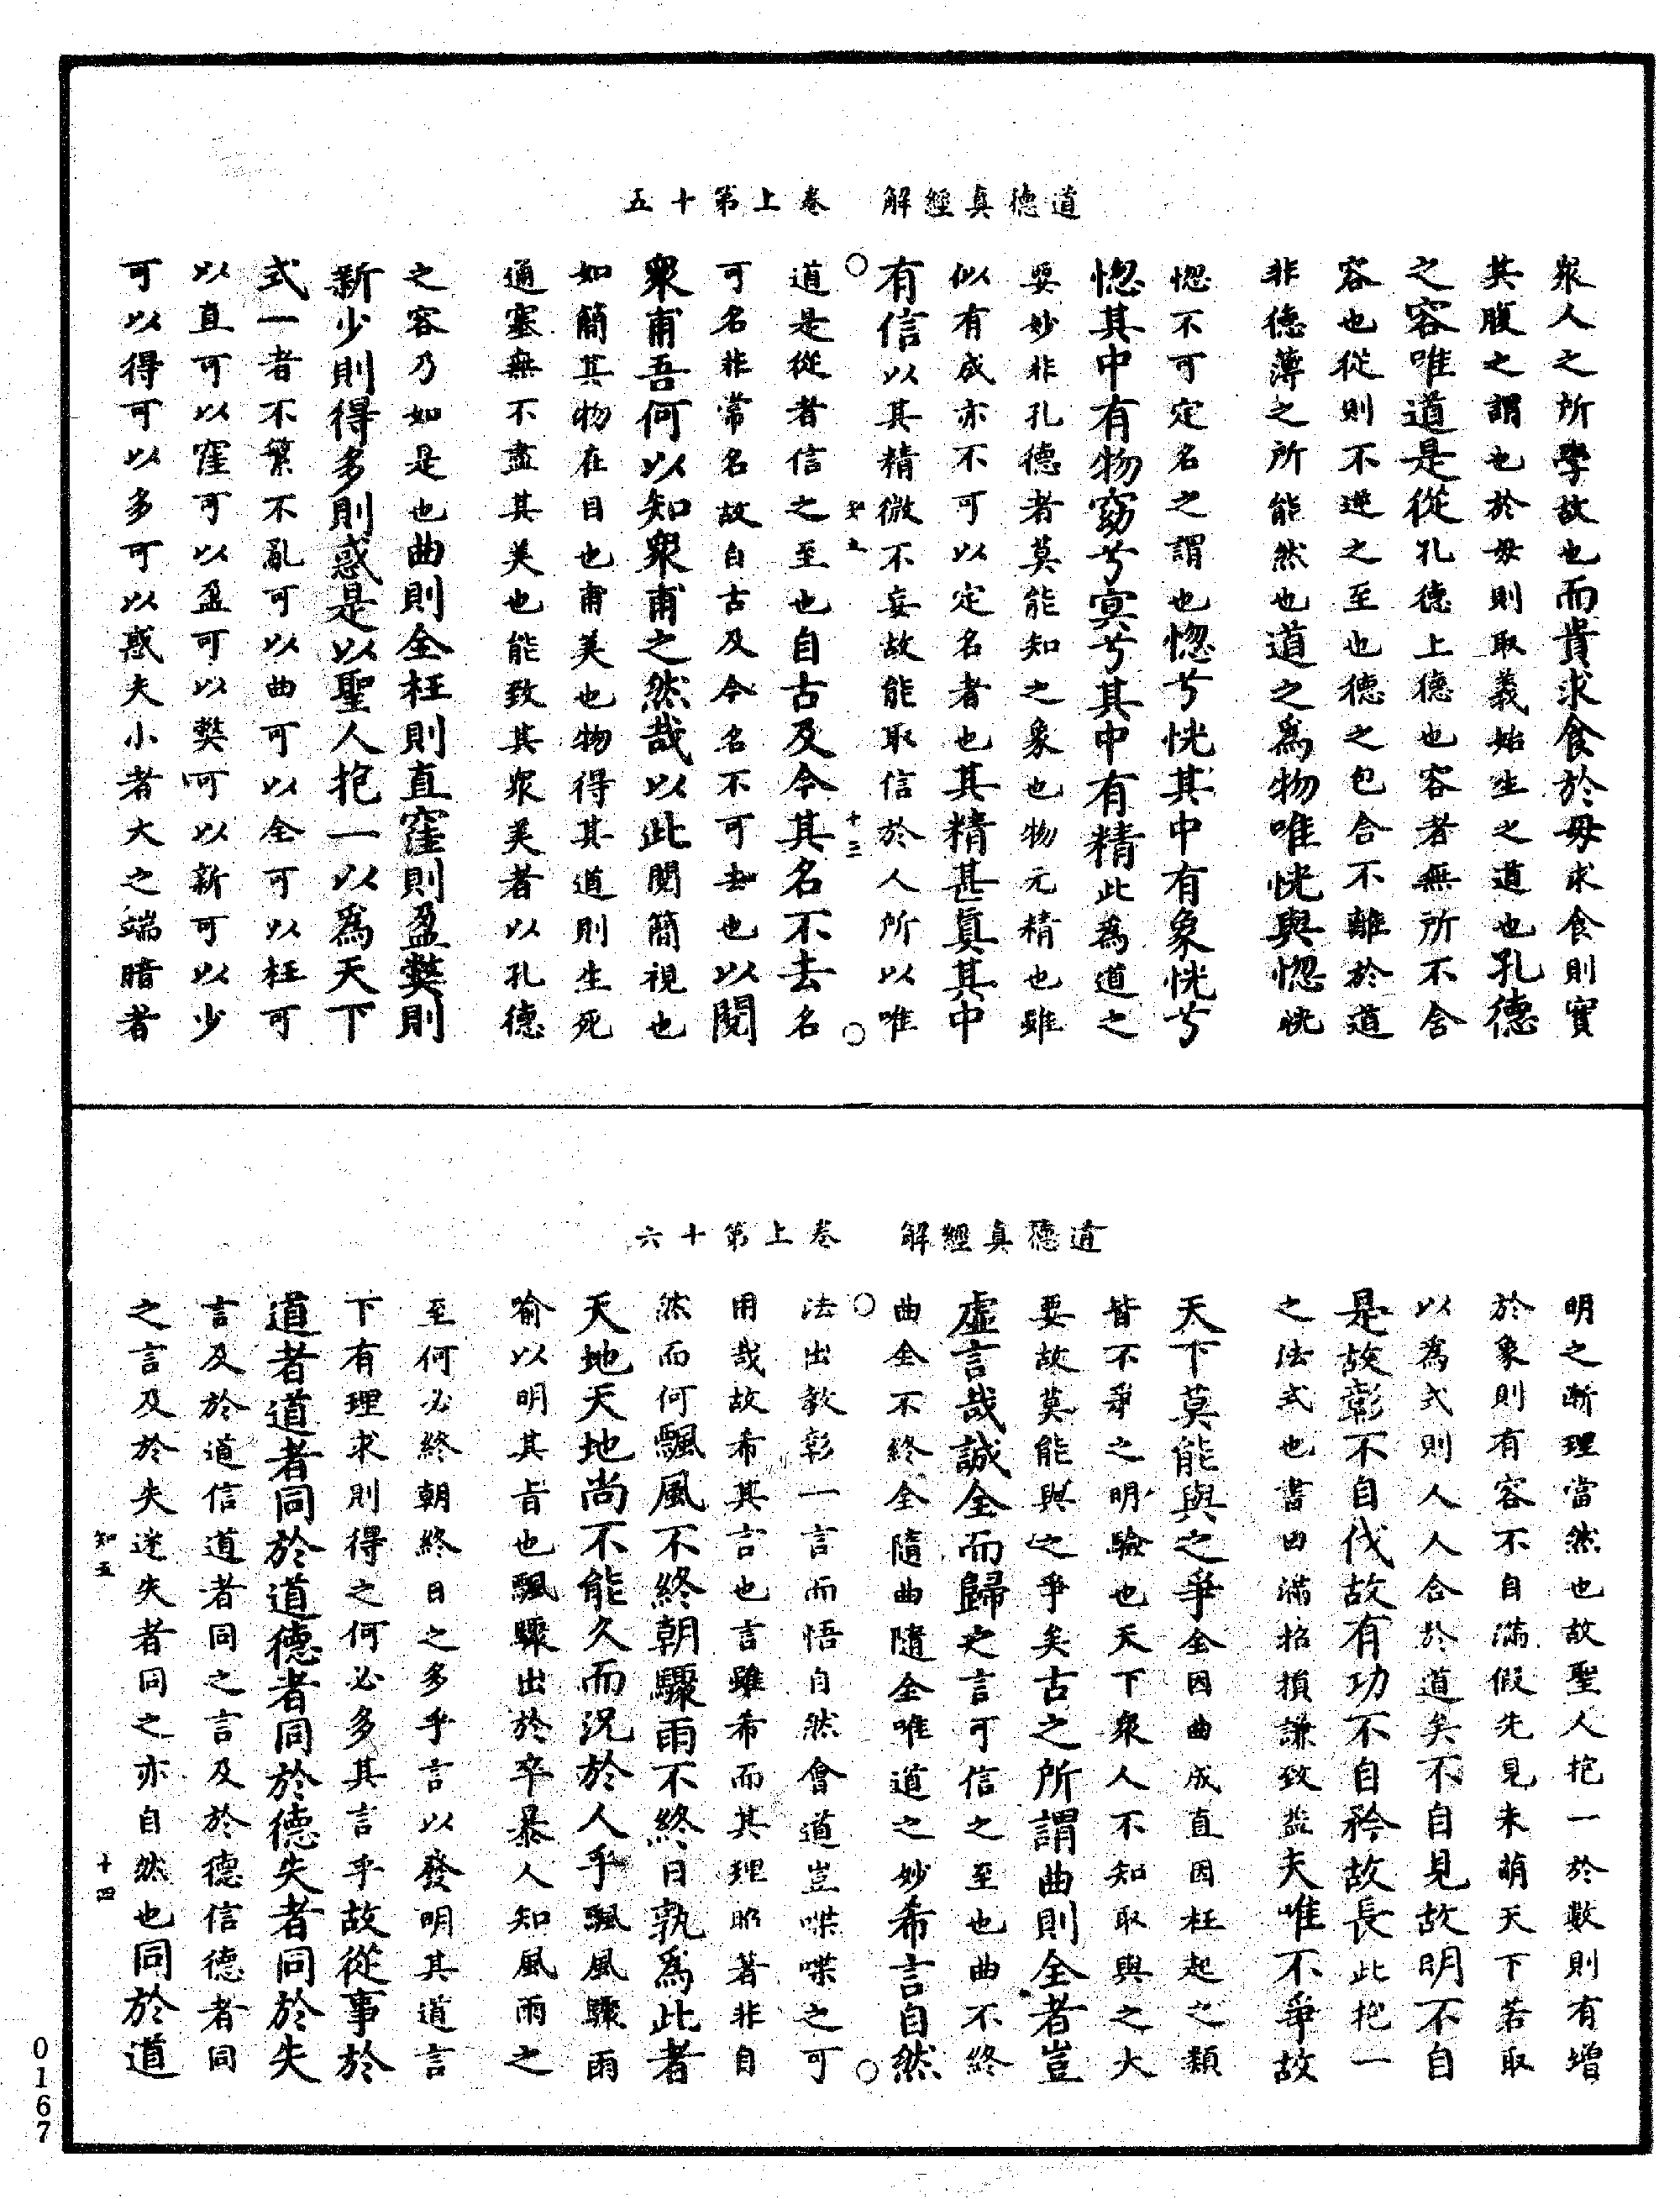 道德真經解　卷上第十五
衆人之所學故也而貴求食於母求食則實
其腹之謂也於母則取義始生之道也孔德
之容唯道是從孔德上德也容者無所不含
容也從則不逆之至也德之包合不離於道
非德薄之所能然也道之爲物唯恍與惚恍
惚不可定名之謂也惚兮恍其中有象恍兮
惚其中有物窈兮冥兮其中有精此爲道之
要妙非孔德者莫能知之象也物元精也雖
似有成亦不可以定名者也其精甚真其中
有信以其精微不妄故能取信於人所以唯
知五　十三
道是從者信之至也自古及今其名不去名
可名非常名故自古及今名不可去也以閱
衆甫吾何以知衆甫之然哉以此閱簡視也
如簡其物在目也甫美也物得其道則生死
通塞無不盡其美也能致其衆美者以孔德
之容乃如是也曲則全枉則直窪則盈弊則
新少則得多則惑是以聖人抱一以爲天下
式一者不繁不亂可以曲可以全可以枉可
以直可以窪可以盈可以弊可以新可以少
可以得可以多可以惑夫小者大之端暗者
道德真經解　卷上第十六
明之漸理當然也故聖人抱一於數則有增
於象則有容不自滿假先見未萌天下若取
以為式則人人合於道矣不自見故明不自
是故彰不自伐故有功不自矜故長此抱一
之法式也書曰滿招損謙致益夫唯不爭故
天下莫能與之爭全因曲成直因枉起之類
皆不爭之明驗也天下衆人不知取與之大
要故莫能與之爭矣古之所謂曲則全者豈
虛言哉誠全而歸之言可信之至也曲不終
曲全不終全隨曲隨全唯道之妙希言自然
法出教彰一言而悟自然會道豈喋喋之可
用哉故希其言也言雖希而其理昭著非自
然而何飄風不終朝驟雨不終日孰爲此者
天地天地尚不能久而況於人乎飄風驟雨
喻以明其旨也飄驟出於卒暴人知風雨之
至何必終朝終日之多乎言以發明其道言
下有理求則得之何必多其言乎故從事於
道者道者同於道德者同於德失者同於失
言及於道信道者同之言及於德信德者同
之言及於失迷失者同之亦自然也同於道
知五　十四
0167